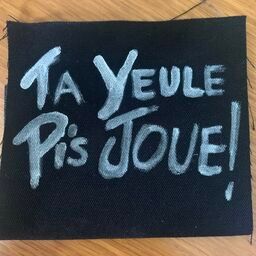 TA YEULE
PiS JOUE!